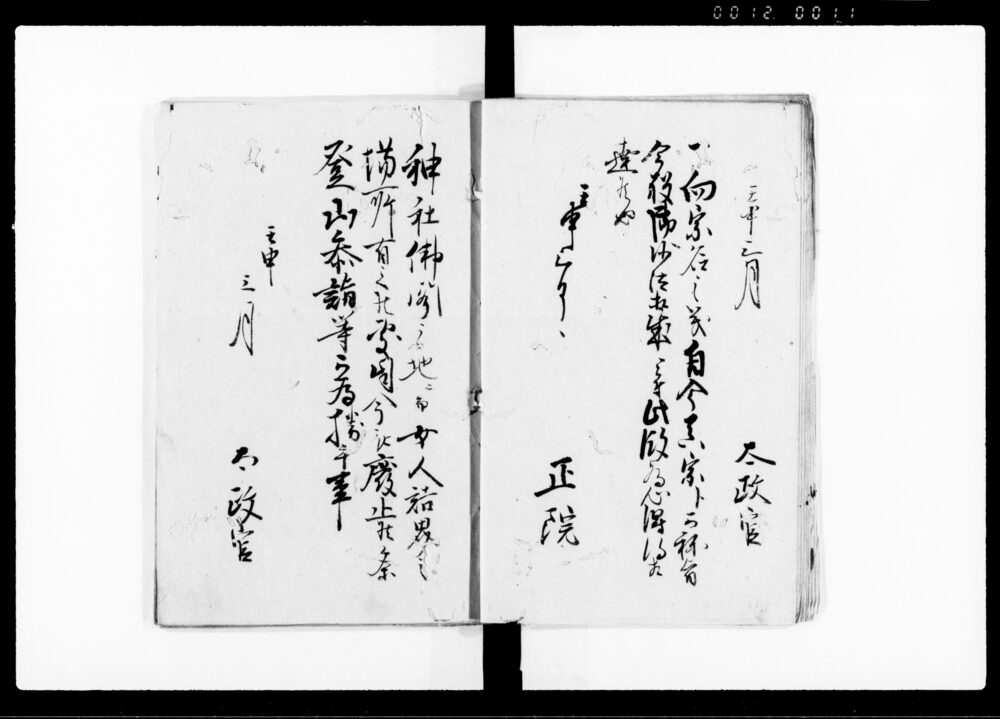 0012 0011
壬申三月
太政官
一向宗名之義自今真宗ト可称旨
今般御沙汰相成候条此段為心得相
達候也
壬申三月
正院
神社佛閣之地ニ而女人結界之
場所有之候處自今被廢止候条
登山参詣等可為勝手事
壬申
三月
太政官